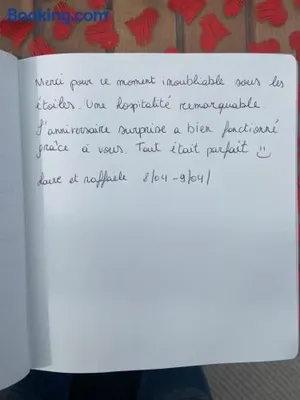 Booking.com
Merci pour ce moment inoubliable sous les
étoiles. Une hospitalité remarquable.
L'anniversaire surprise a bien fonctionné
grâce à vous. Tout était parfait
et raffaele 8/04 - 9/04/